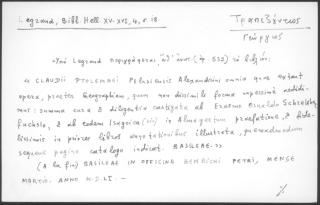 Legrand, Bibl. Hell. XV-XVI, 4, σ. 18
Τραπεζούντιος
Γεώργιος
Legrand περιγράφεται,
CLAUDII PTOLEMAEI Pelusiensis Alexandrini omnia quae extant
opera, praeter Geographiam, quam non dissimili forma nuperrimè aedidi-
mus: summa cura & diligentia castigata ab Erasmo Osualdo Schrekhen-
fuchsio, & ab eodem Isagoica (sic) in Almagestum praefatione, & fide-
lissimis in priores libros annotationibus illustrata, quemadmodum
sequens pagina catalogo indicat. BASILEAE.»
(A la fin) BASILEAE IN OFFICINA HENRICHI PETRI, MENSE
MARTIO. ANNO M.D.LI. —